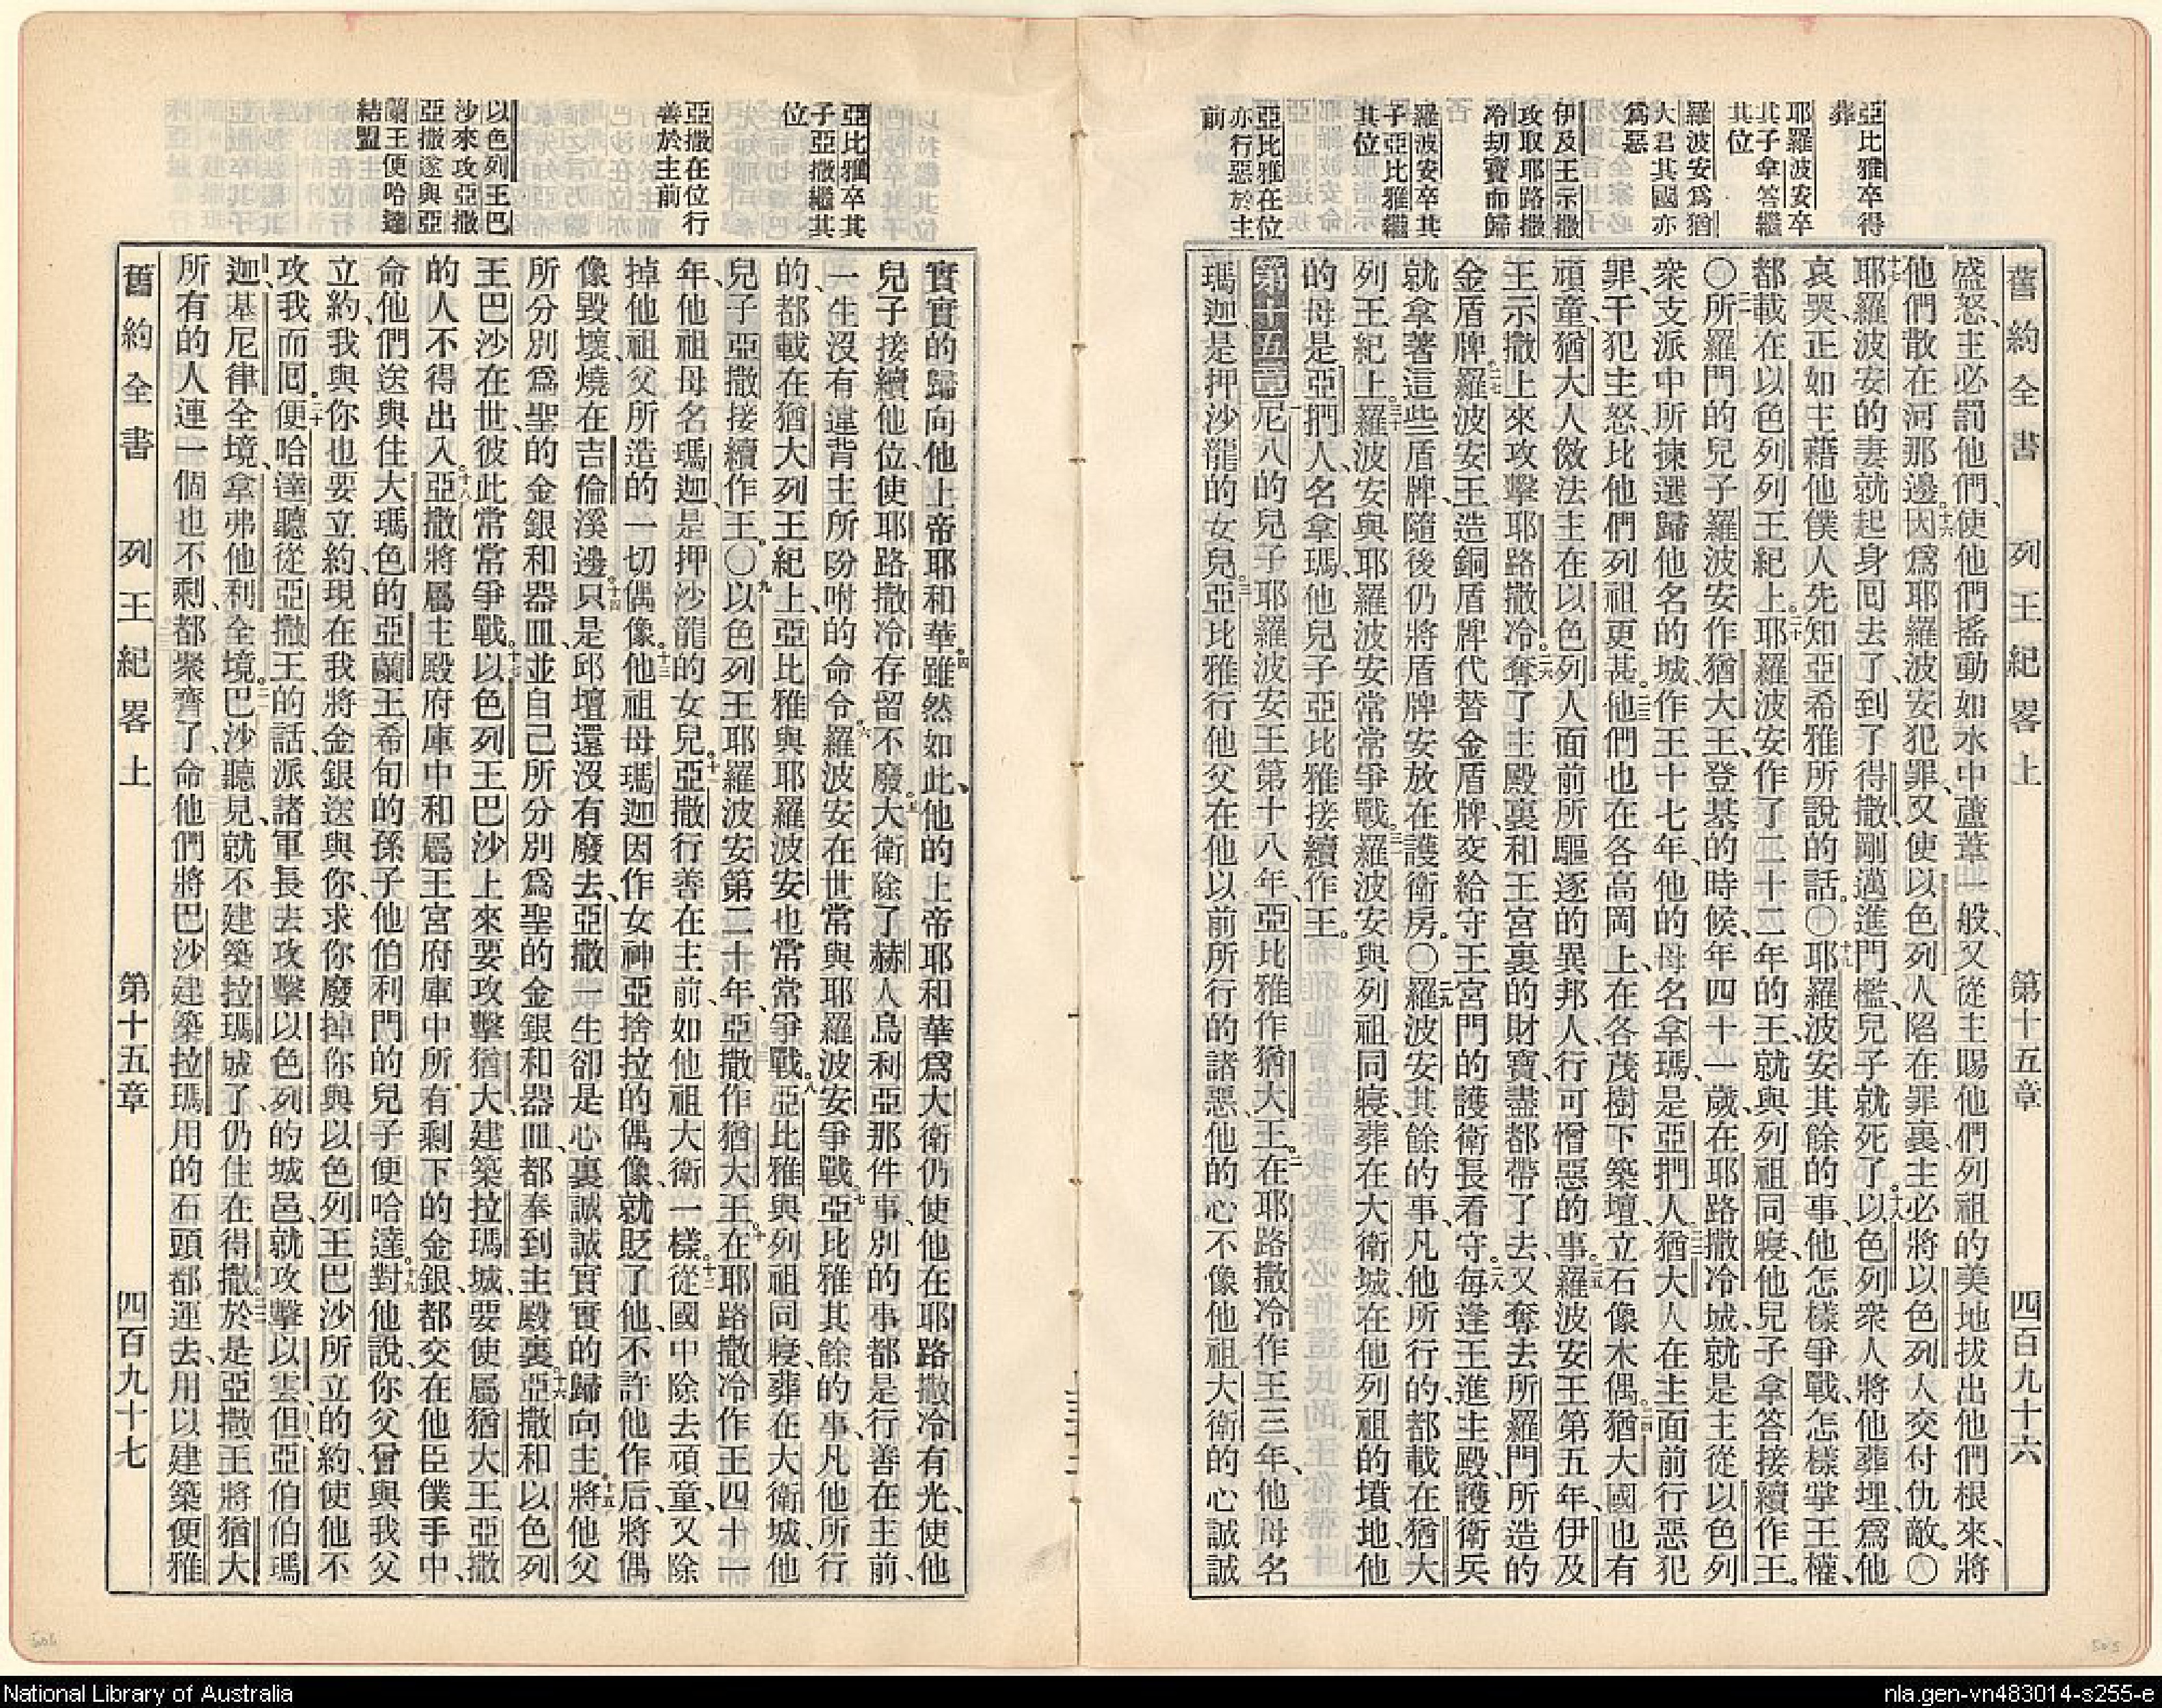 舊約全書　列王紀畧上　第十五章　四百九十六
亞比雅卒得
葬
耶羅波安卒
其子拿答繼
其位
羅波安爲猶
大君其國亦
爲惡
伊及王示撒
攻取耶路撒
冷刧寶而歸
羅波安卒其
子亞比雅繼
其位
亞比雅在位
亦行惡於主
前
盛怒、主必罰他們、使他們搖動如水中蘆葦一般、又從主賜他們列祖的美地拔出他們根來、將
他們散在河那邊。十六因爲耶羅波安犯罪、又使以色列人陷在罪裏、主必將以色列人交付仇敵。〇
十七耶羅波安的妻就起身囘去了、到了得撒、剛邁進門檻、兒子就死了。十八以色列衆人將他葬埋、爲他
哀哭、正如主藉他僕人先知亞希雅所說的話。〇十九耶羅波安其餘的事、他怎樣爭戰、怎樣掌王權、
都載在以色列列王紀上。二十耶羅波安作了二十二年的王、就與列祖同寢、他兒子拿答接續作王。
〇所羅門的兒子羅波安作猶大王、登基的時候、年四十一歲、在耶路撒冷城、就是主從以色列
衆支派中所揀選歸他名的城、作王十七年、他的母名拿瑪、是亞捫人。二二猶大人在主面前行惡犯
罪、干犯主怒、比他們列祖更甚。二三他們也在各高岡上、在各茂樹下築壇、立石像木偶。二四猶大國也有
頑童、猶大人傚法主在以色列人面前所驅逐的異邦人、行可憎惡的事。二五羅波安王第五年、伊及
王示撒上來攻擊耶路撒冷。二六奪了主殿裏和王宮裏的財寶、盡都帶了去、又奪去所羅門所造的
金盾牌。二七羅波安王造銅盾牌代替金盾牌、交給守王宮門的護衛長看守。二八每逢王進主殿、護衛兵
就拿著這些盾牌、隨後仍將盾牌安放在護衛房。〇二九羅波安其餘的事、凡他所行的、都載在猶大
列王紀上。三十羅波安與耶羅波安常常爭戰。三一羅波安與列祖同寢、葬在大衛城、在他列祖的墳地、他
的母是亞捫人、名拿瑪、他兒子亞比雅接續作王。
第十五章 一尼八的兒子耶羅波安王第十八年、亞比雅作猶大王。二在耶路撒冷作王三年、他母名
瑪迦、是押沙龍的女兒。三亞比雅行他父在他以前所行的諸惡、他的心不像他祖大衛的心誠誠
亞比雅卒其
子亞撒繼其
位
亞撒在位行
善於主前
以色列王巴
沙來攻亞撒
亞撒遂與亞
蘭王便哈達
結盟
實實的歸向他上帝耶和華。四雖然如此、他的上帝耶和華爲大衛仍使他在耶路撒冷有光、使他
兒子接續他位、使耶路撒冷存留不廢。五大衛除了赫人烏利亞那件事、別的事都是行善在主前、
一生沒有違背主所吩咐的命令。六羅波安在世、常與耶羅波安爭戰。七亞比雅其餘的事、凡他所行
的、都載在猶大列王紀上、亞比雅與耶羅波安也常常爭戰。八亞比雅與列祖同寢、葬在大衛城、他
兒子亞撒接續作王。〇九以色列王耶羅波安第二十年、亞撒作猶大王。十在耶路撒冷作王四十一
年、他祖母名瑪迦、是押沙龍的女兒。十一亞撒行善在主前、如他祖大衛一樣。十二從國中除去頑童、又除
掉他祖父所造的一切偶像。十三他祖母瑪迦因作女神亞舍拉的偶像、就貶了他、不許他作后、將偶
像毀壞、燒在吉倫溪邊。十四只是邱壇還沒有廢去、亞撒一生卻是心裏誠誠實實的歸向主。十五將他父
所分別爲聖的金銀和器皿、並自己所分別爲聖的金銀和器皿、都奉到主殿裏。十六亞撒和以色列
王巴沙在世、彼此常常爭戰。十七以色列王巴沙上來要攻擊猶大、建築拉瑪城、要使屬猶大王亞撒
的人不得出入。十八亞撒將屬主殿府庫中和屬王宮府庫中所有剩下的金銀、都交在他臣僕手中、
命他們送與住大瑪色的亞蘭王希旬的孫子、他伯利門的兒子便哈達。十九對他說、你父曾與我父
立約、我與你也要立約、現在我將金銀送與你、求你廢掉你與以色列王巴沙所立的約、使他不
攻我而囘。二十便哈達聽從亞撒王的話、派諸軍長去攻擊以色列的城邑、就攻擊以雲、但、亞伯伯瑪
迦、基尼律全境、拿弗他利全境。二一巴沙聽見就不建築拉瑪城了、仍住在得撒。二二於是亞撒王將猶大
所有的人連一個也不剩、都聚齊了、命他們將巴沙建築拉瑪用的石頭都運去、用以建築便雅
舊約全書　列王紀畧上　第十五章　四百九十七
National Library of Australia
nla.gen-vn483014-s255-e